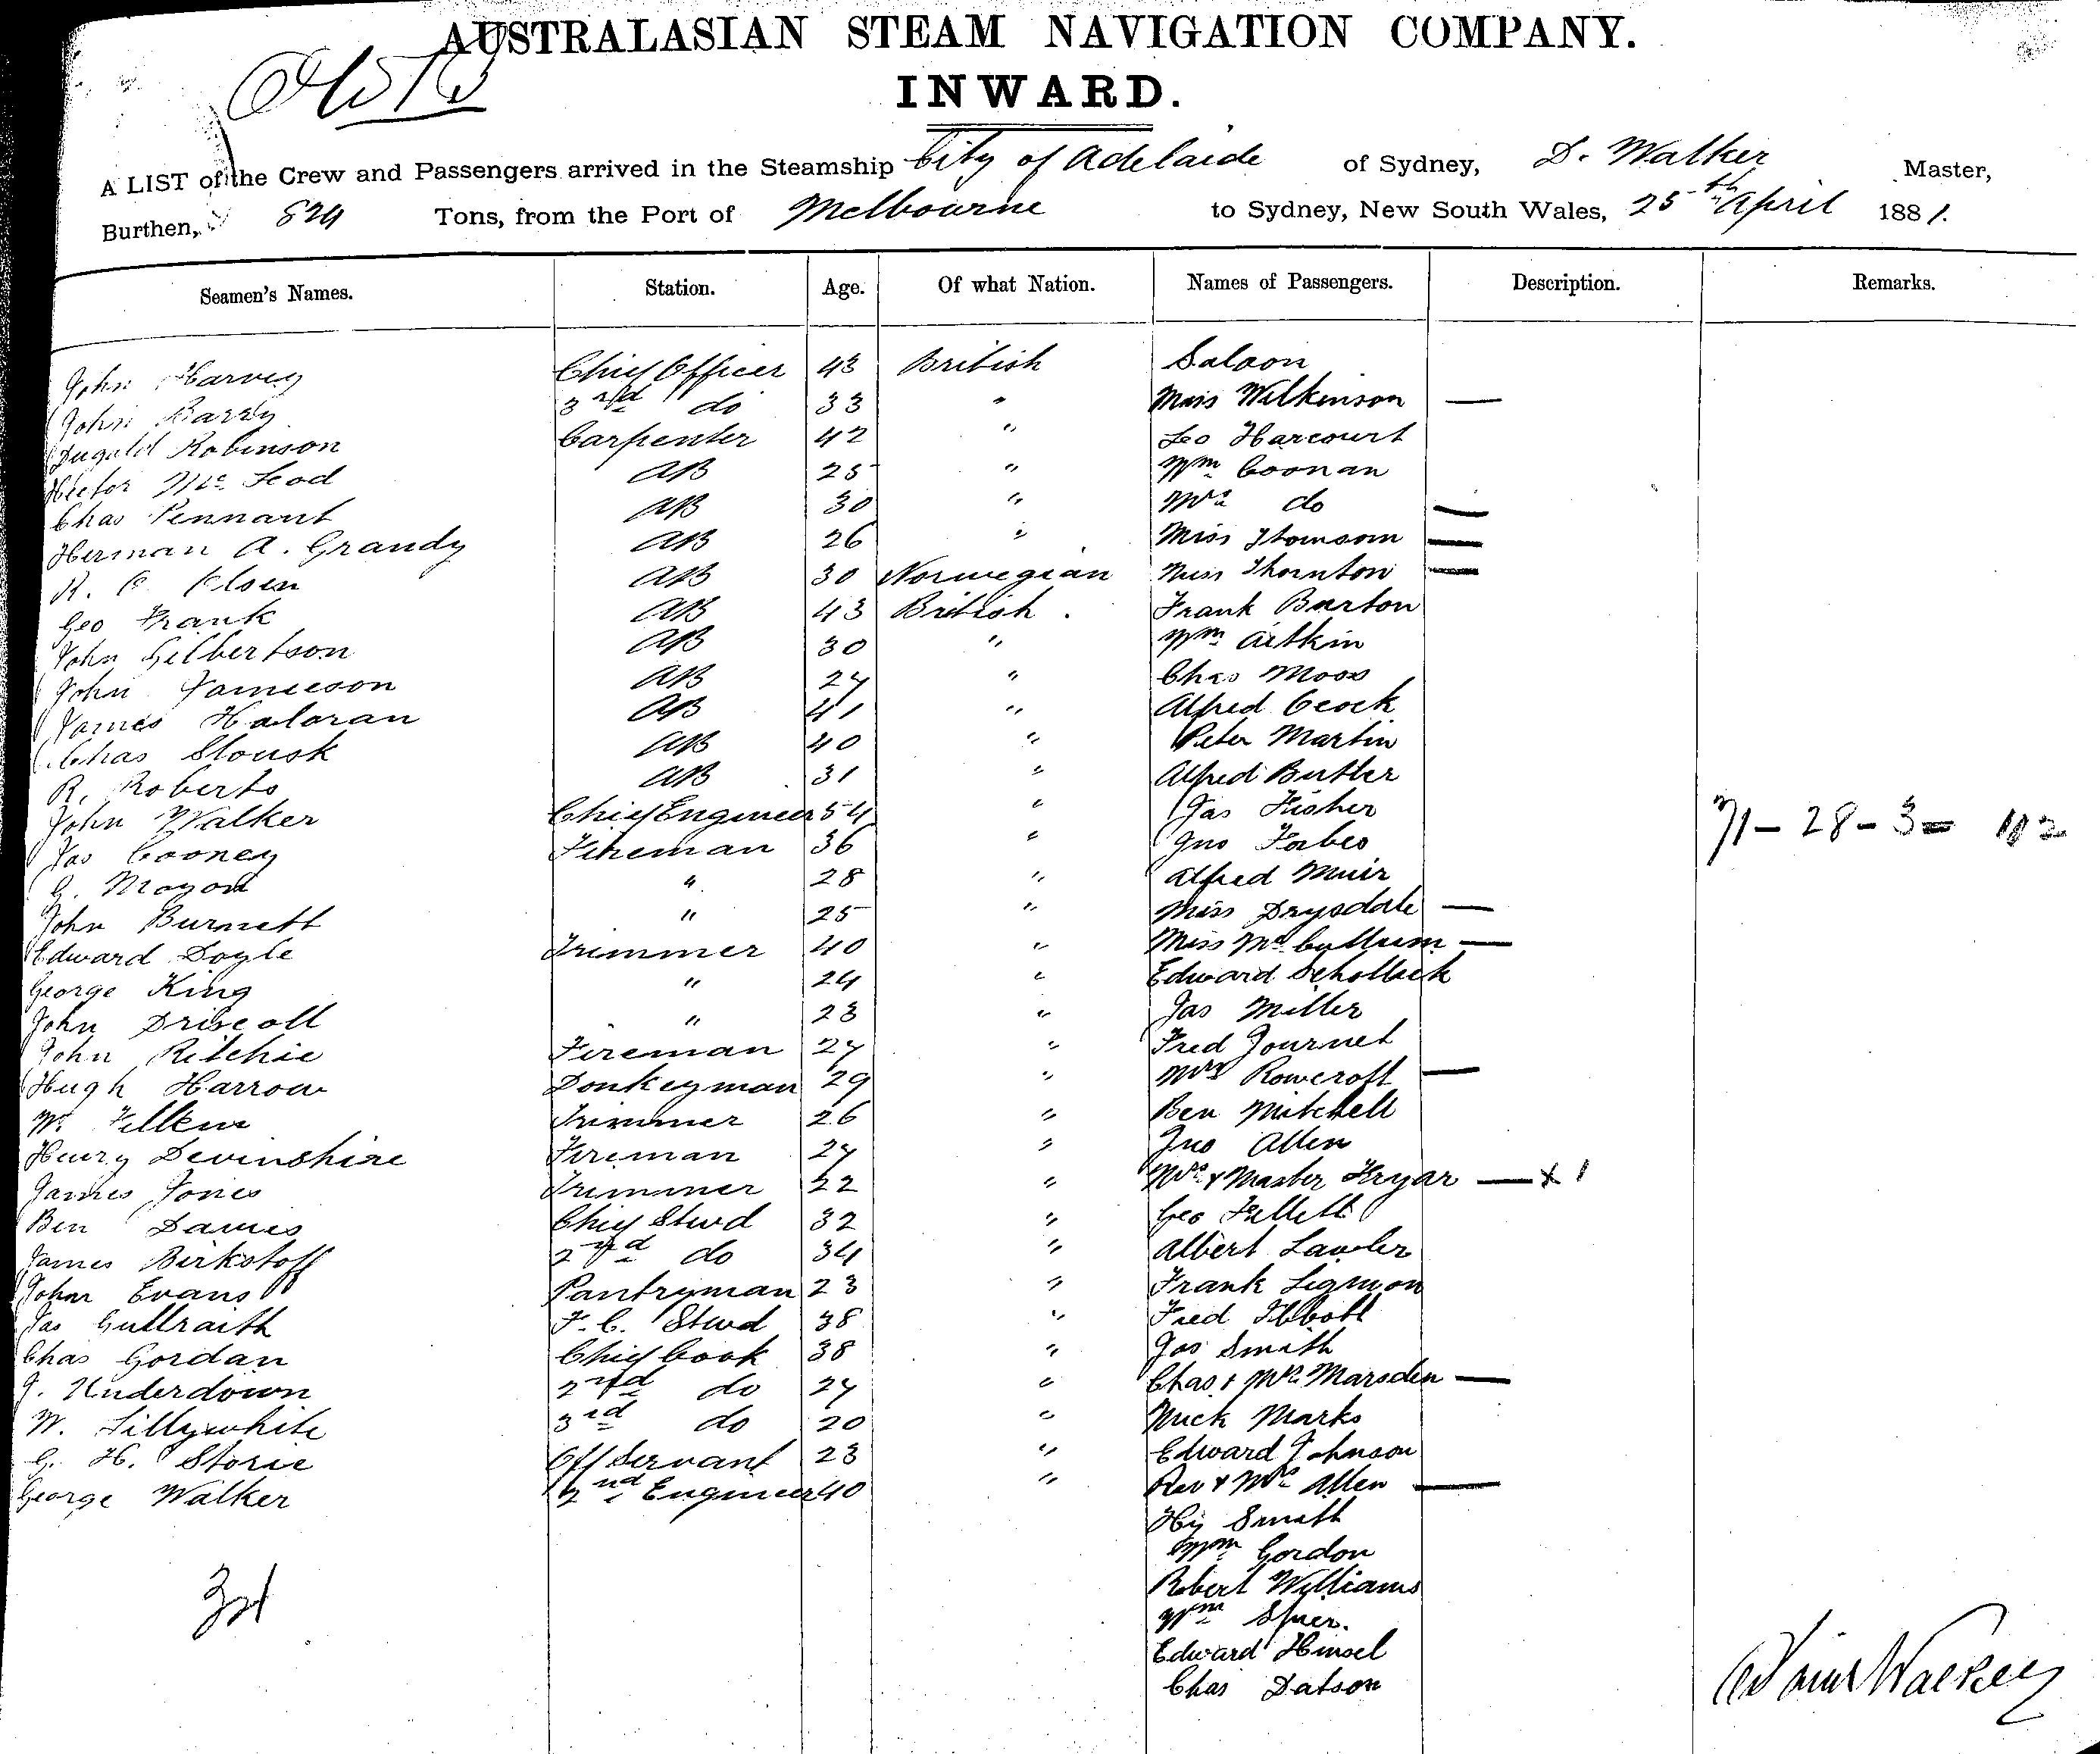 AUSTRALASIAN STEAM NAVIGATION COMPANY.
INWARD.
A LIST of the Crew and Passengers arrived in the Steamship City of Adelaide of Sydney, D. Walker Master,
Burthen, 824 Tons, from the Port of Melbourne to Sydney, New South Wales, 25th April 1881.
Seamen's Names. Station. Age. Of what Nation. Names of Passengers. Description. Remarks.
John Harvey Chief Officer 43 British Saloon
John Barry 3rd do 33 " Miss Wilkinson —
Dugald Robinson Carpenter 42 " Geo Harcourt
Hector McLeod AB 25 " Wm Coonan
Chas Pennant AB 30 " Mrs do —
Herman A. Grandy AB 26 " Miss Thomson —
R. C. Olsen AB 30 Norwegian Miss Thornton —
Geo Frank AB 43 British Frank Burton
John Gilbertson AB 30 " Wm Aitkin
John Jamieson AB 27 " Chas Moos
James Haloran AB 41 " Alfred Ceock
Chas Stousk AB 40 " Peter Martin
R. Roberts AB 31 " Alfred Butler
John Walker Chief Engineer 54 " Jas Fisher
Jas Cooney Fireman 36 " Jno Forbes 71 - 28 - 3 = 102
G. " 28 " Alfred Muir
John Burnett " 25 " Miss Drysdale —
Edward Doyle Trimmer 40 " Miss McCullum —
George King " 24 " Edward Schollick
John Driscoll " 23 " Jas Miller
John Ritchie Fireman 27 " Fred Journet
Hugh Harrow Donkeyman 29 " Mrs Rowcroft —
W. Trimmer 26 " Ben Mitchell
Henry Devinshire Fireman 27 " Jno Allen
James Jones Trimmer 22 " Mrs & Master Fryar — x 1
Ben Davies Chief Stwd 32 " Geo Fellett
James Birkstoff 2nd do 34 " Albert Lawler
John Evans Pantryman 23 " Frank Sigmon
Jas Gullraith F. C. Stwd 38 " Fred Ibbott
Chas Gordan Chief Cook 38 " Jos Smith
J. Underdown 2nd do 27 " Chas & Mrs Marsden —
W. Lillywhite 3rd do 20 " Mick Marks
G. H. Storie Off Servant 23 " Edward Johnson
George Walker 2nd Engineer 40 " Rev & Mrs Allen —
Hy Smith
Wm Gordon
Robert Williams
Wm Spier.
Edward Hinsel
Chas Datson